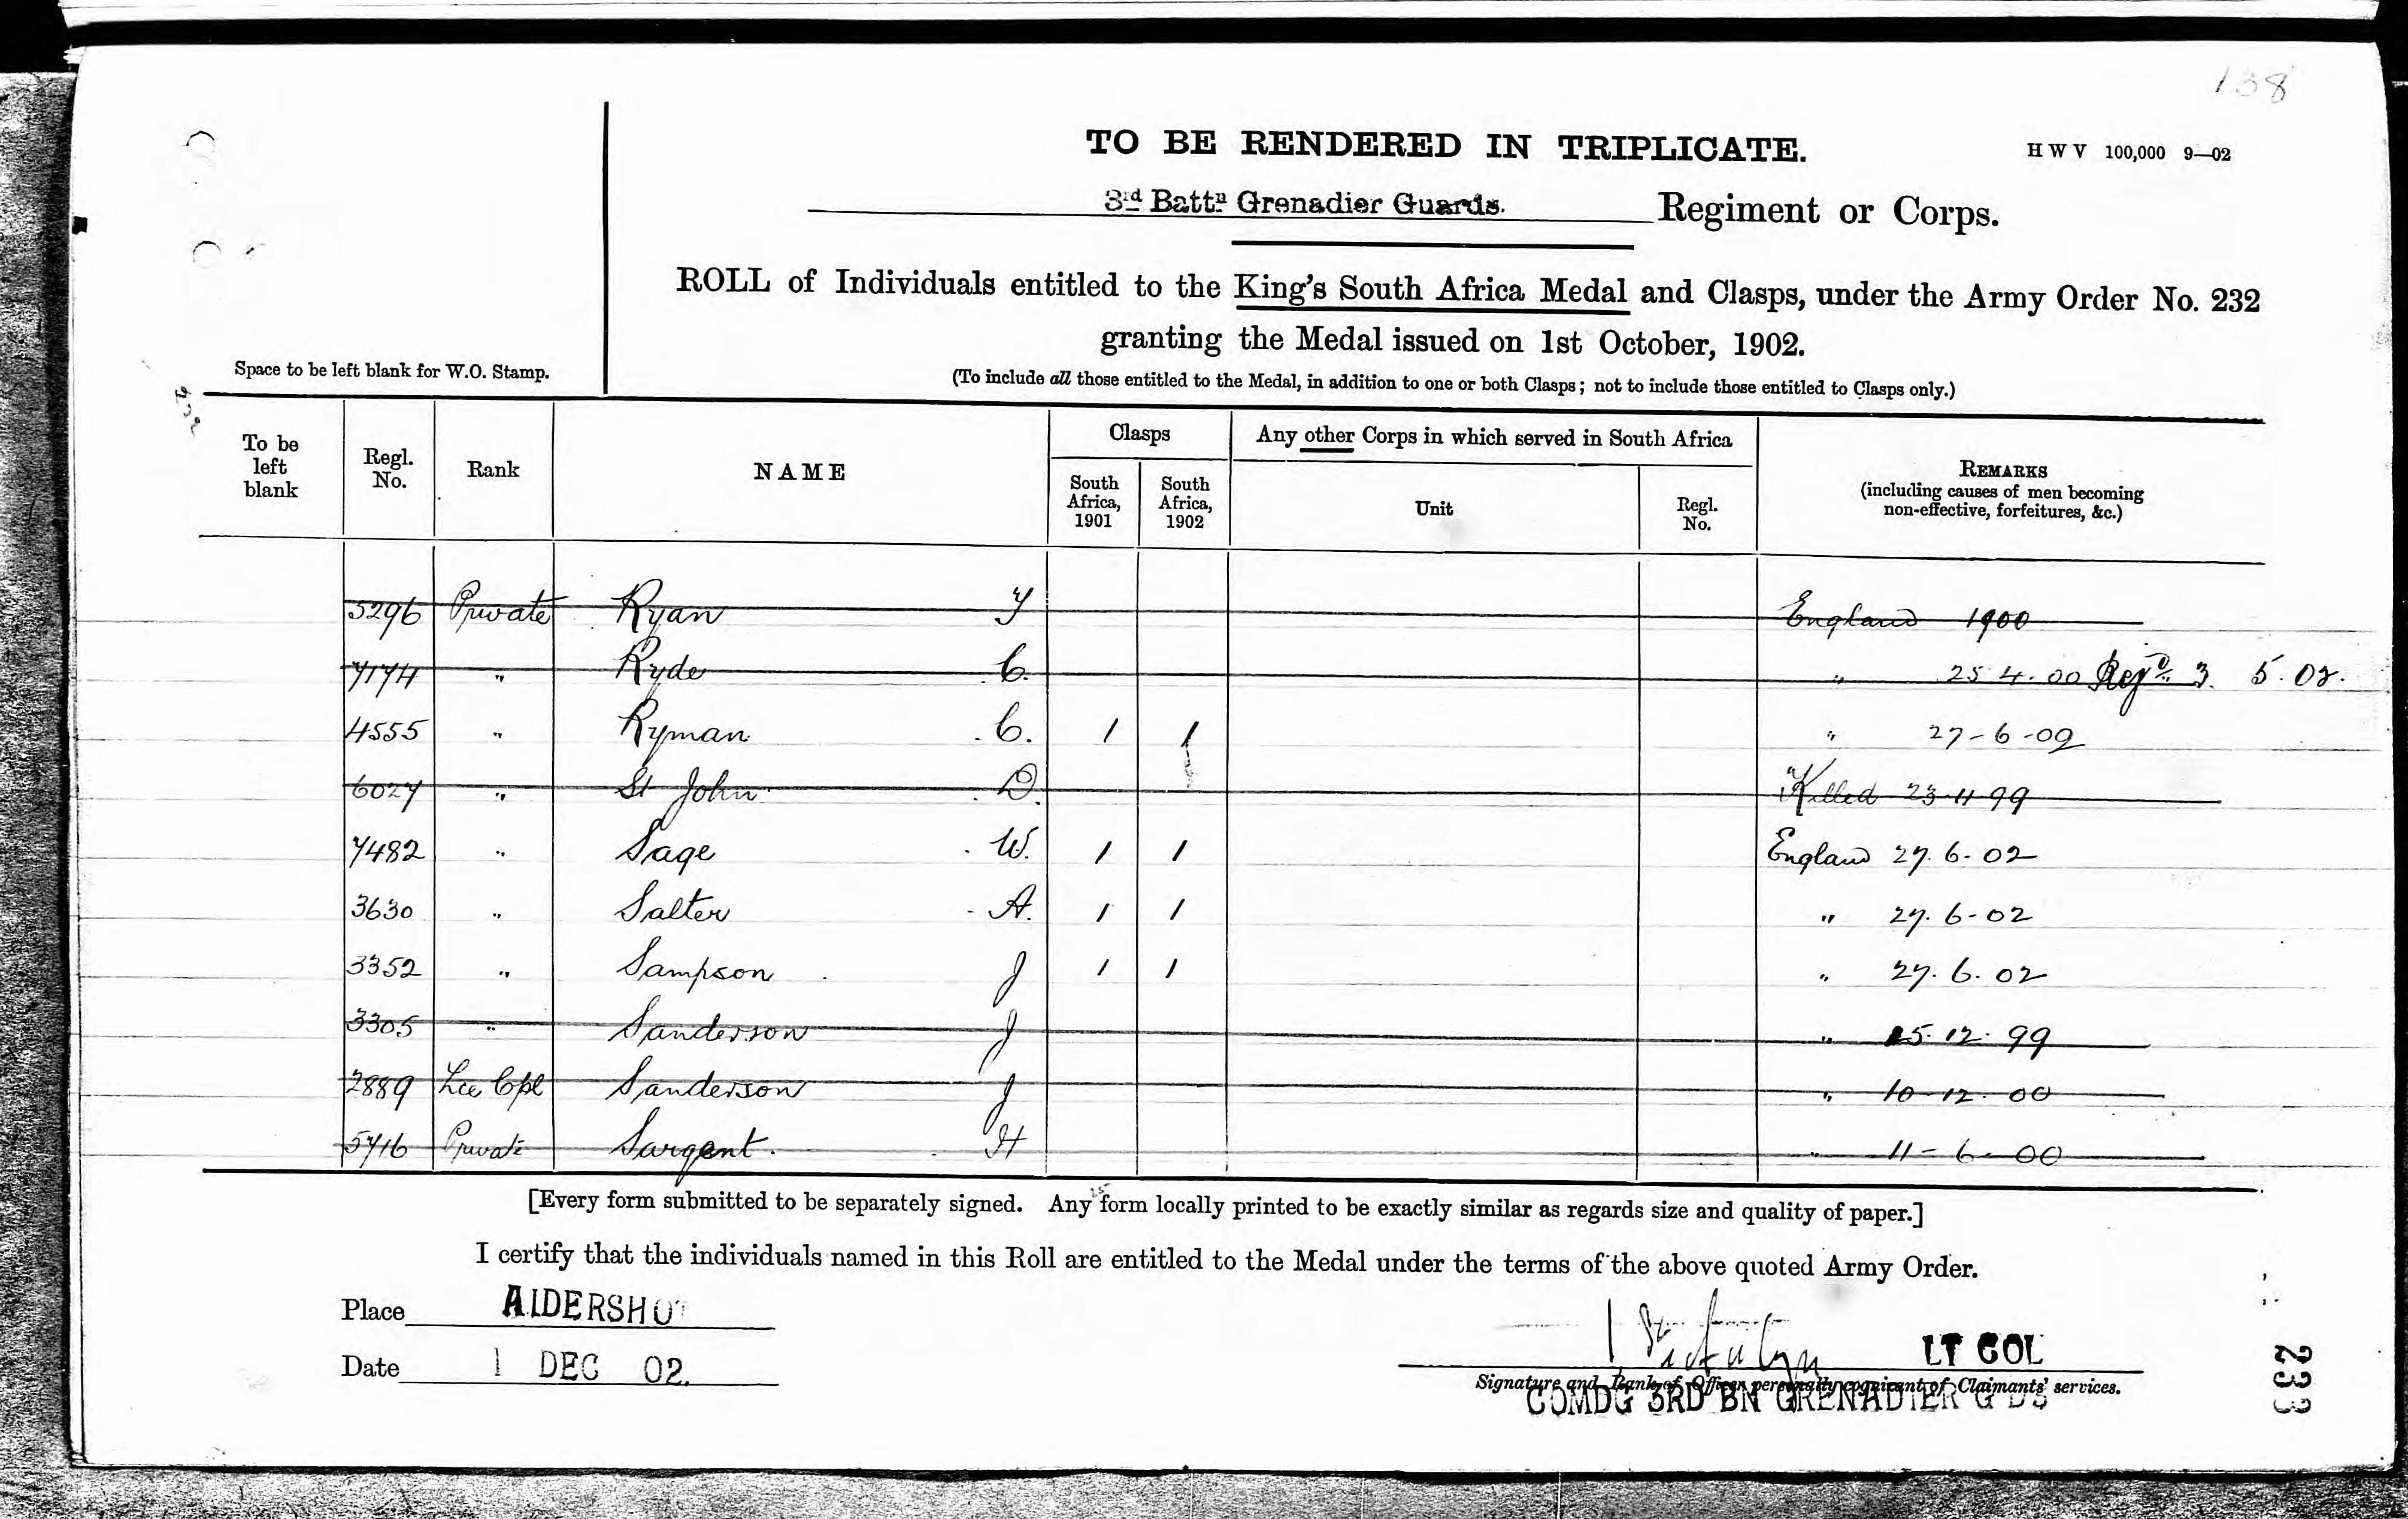 138
TO BE RENDERED IN TRIPLICATE.
H W V 100,000 9—02
3rd Battn Grenadier Guards. Regiment or Corps.
ROLL of Individuals entitled to the King's South Africa Medal and Clasps, under the Army Order No. 232
granting the Medal issued on 1st October, 1902.
Space to be left blank for W.O. Stamp.
(To include all those entitled to the Medal, in addition to one or both Clasps; not to include those entitled to Clasps only.)
To be left blank Regl. No. Rank NAME Clasps South Africa, 1901 South Africa, 1902 Any other Corps in which served in South Africa Unit Regl. No. REMARKS (including causes of men becoming non-effective, forfeitures, &c.)
5296 Private Ryan England 1900
7174 " Ryde C. " 25 4. 00 Rejd. 3. 5. 02.
4555 " Ryman C. 1 1 " 27-6-02
6027 " St John D. Killed 23-11-99
7482 " Sage W. 1 1 England 27. 6. 02
3630 " Salter A. 1 1 " 27. 6-02
3352 " Sampson J 1 1 " 27. 6. 02
3305 " Sanderson J " 25. 12. 99
2889 Lce Cpl Sanderson J " 10-12. 00
5716 Private Sargent. H " 11-6-00
[Every form submitted to be separately signed. Any form locally printed to be exactly similar as regards size and quality of paper.]
I certify that the individuals named in this Roll are entitled to the Medal under the terms of the above quoted Army Order.
Place ALDERSHOT
Date 1 DEC 02.
LT COL
Signature and Rank of Officer personally cognizant of Claimants' services.
COMDG 3RD BN GRENADIER GDS
233